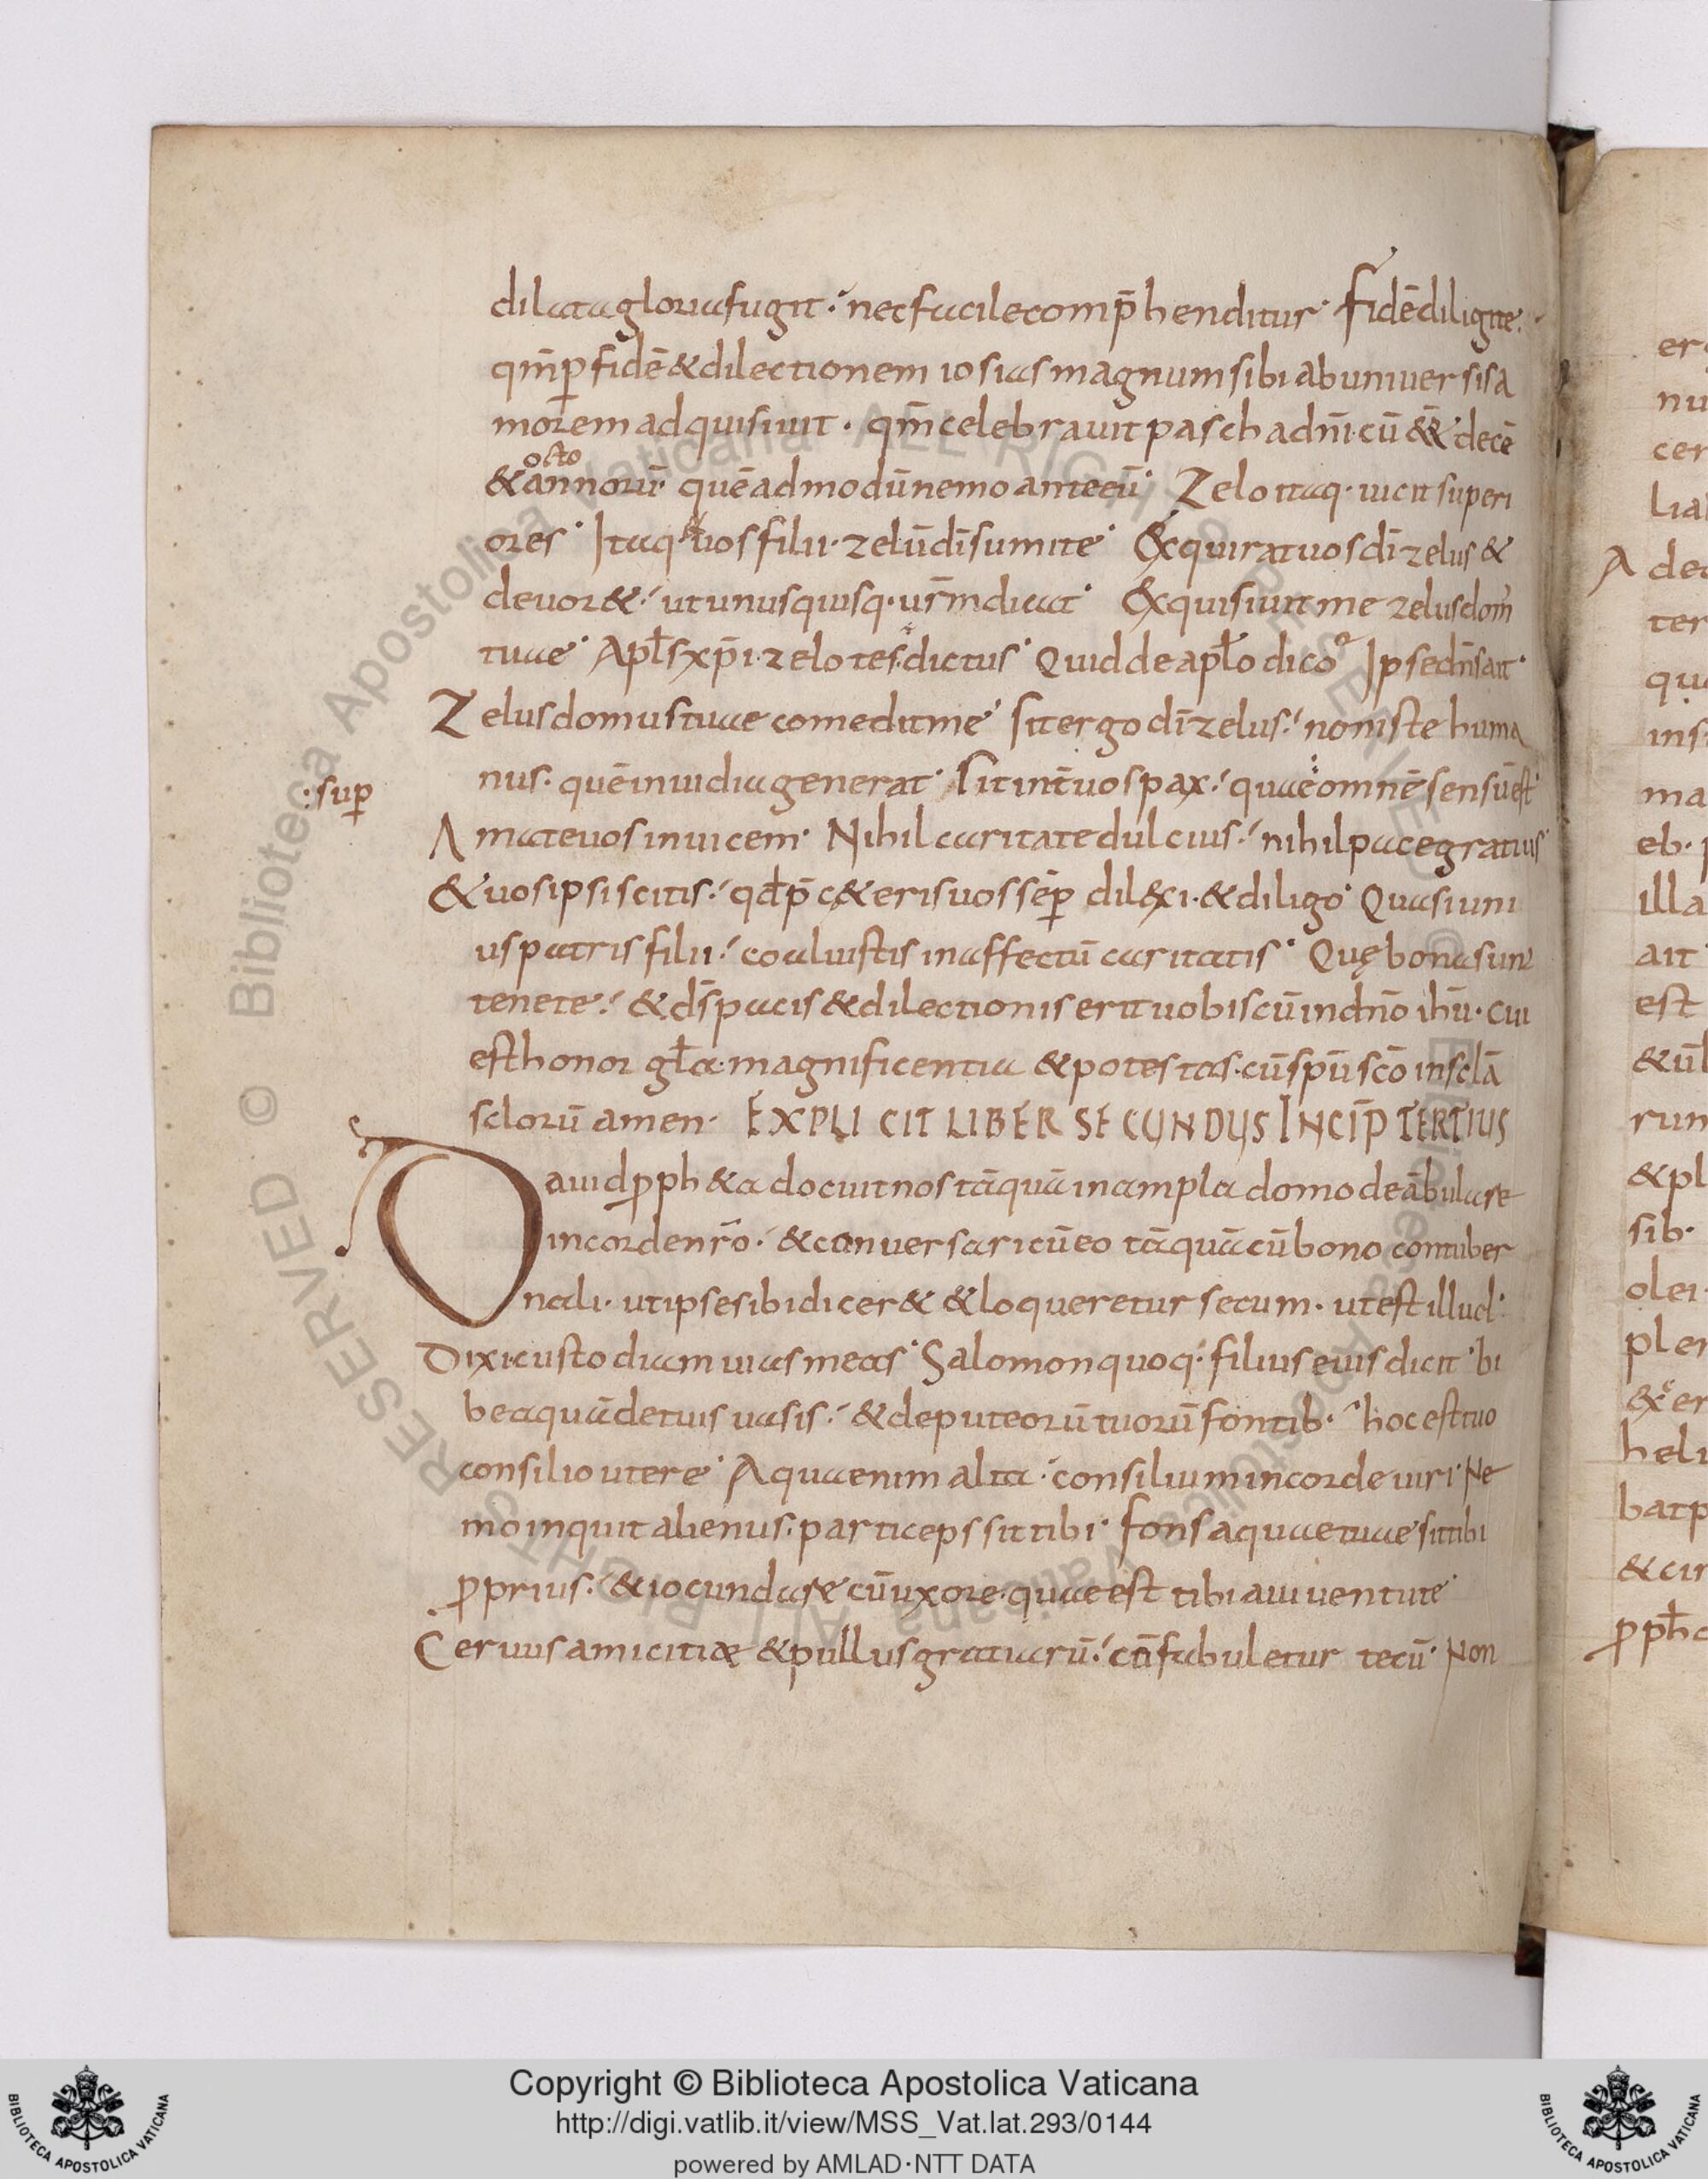 dilata gloria fugit. nec facile comp̄henditur. Fidē diligite.
qm̄ p̱ fidē & dilectionem iosias magnum sibi ab uniuersis a
morem adquisiuit. qm̄ celebrauit pascha dnī. cū &&̄ decē
octo
& annorū. quē admodū nemo ante eū. Zelo itaq. uicit superi
ores. Itaq. & uos filii. zelū dī sumite. Exquirat uos dī zelus &
deuor&. ut unusquisq. urm̄ dicat. Exquisiuit me zelus dom̄
tuae. Apłs xp̄i. zelotes dictus. Quid de apło dico. Ipse dn̄s ait.
Zelus domus tuae comedit me. Sit ergo dī zelus. non iste huma
nus. quē inuidia generat. Sit int̄ uos pax. quae omnē sensū est.
:sup̱
Amate uos inuicem. Nihil caritate dulcius. nihil pace gratius.
& uos ipsi scitis. qđ p̄ c&eris uos sēp̱ dilexi. & diligo. Quasi uni
us patris filii. coaluistis in affectū caritatis. Quę bona sunt
tenete. & dš pacis & dilectionis erit uobiscū in dn̄o ihū. cui
est honor gła. magnificentia & potestas. cū spū scō in sclā
sclorū amen. EXPLICIT LIBER SECUNDUS INCIP̄ TERTIUS
Dauid p̱ph&a docuit nos tāquā in ampla domo deābulare
in corde nr̄o. & conuersari cū eo tāquā cū bono contuber
nali. ut ipse sibi dicer& & loqueretur secum. ut est illud.
Dixi. custodiam uias meas. Salomon quoq. filius eius dicit. bi
be aquā de tuis uasis. & de puteorū tuorū fontib. hoc est tuo
consilio utere. Aqua enim alta. consilium in corde uiri. Ne
mo inquit alienus. particeps sit tibi. fons aquae tuae sit tibi
p̱prius. & iocundare cū uxore. quae est tibi a iuuentute.
Ceruus amicitiæ & pullus gratiarū. cn̄fabuletur tecū. Non
er
nu
cer
lia
A dec
ter
qu
ins
ma
eb.
illa
ait
est
& ūl
run
& pl
sib.
olei
pler
& er
heli
bat p
& cir
p̱ph
© Biblioteca Apostolica Vaticana ALL RIGHTS RESERVED
Copyright © Biblioteca Apostolica Vaticana
http://digi.vatlib.it/view/MSS_Vat.lat.293/0144
powered by AMLAD·NTT DATA
BIBLIOTECA APOSTOLICA VATICANA
BIBLIOTECA APOSTOLICA VATICANA